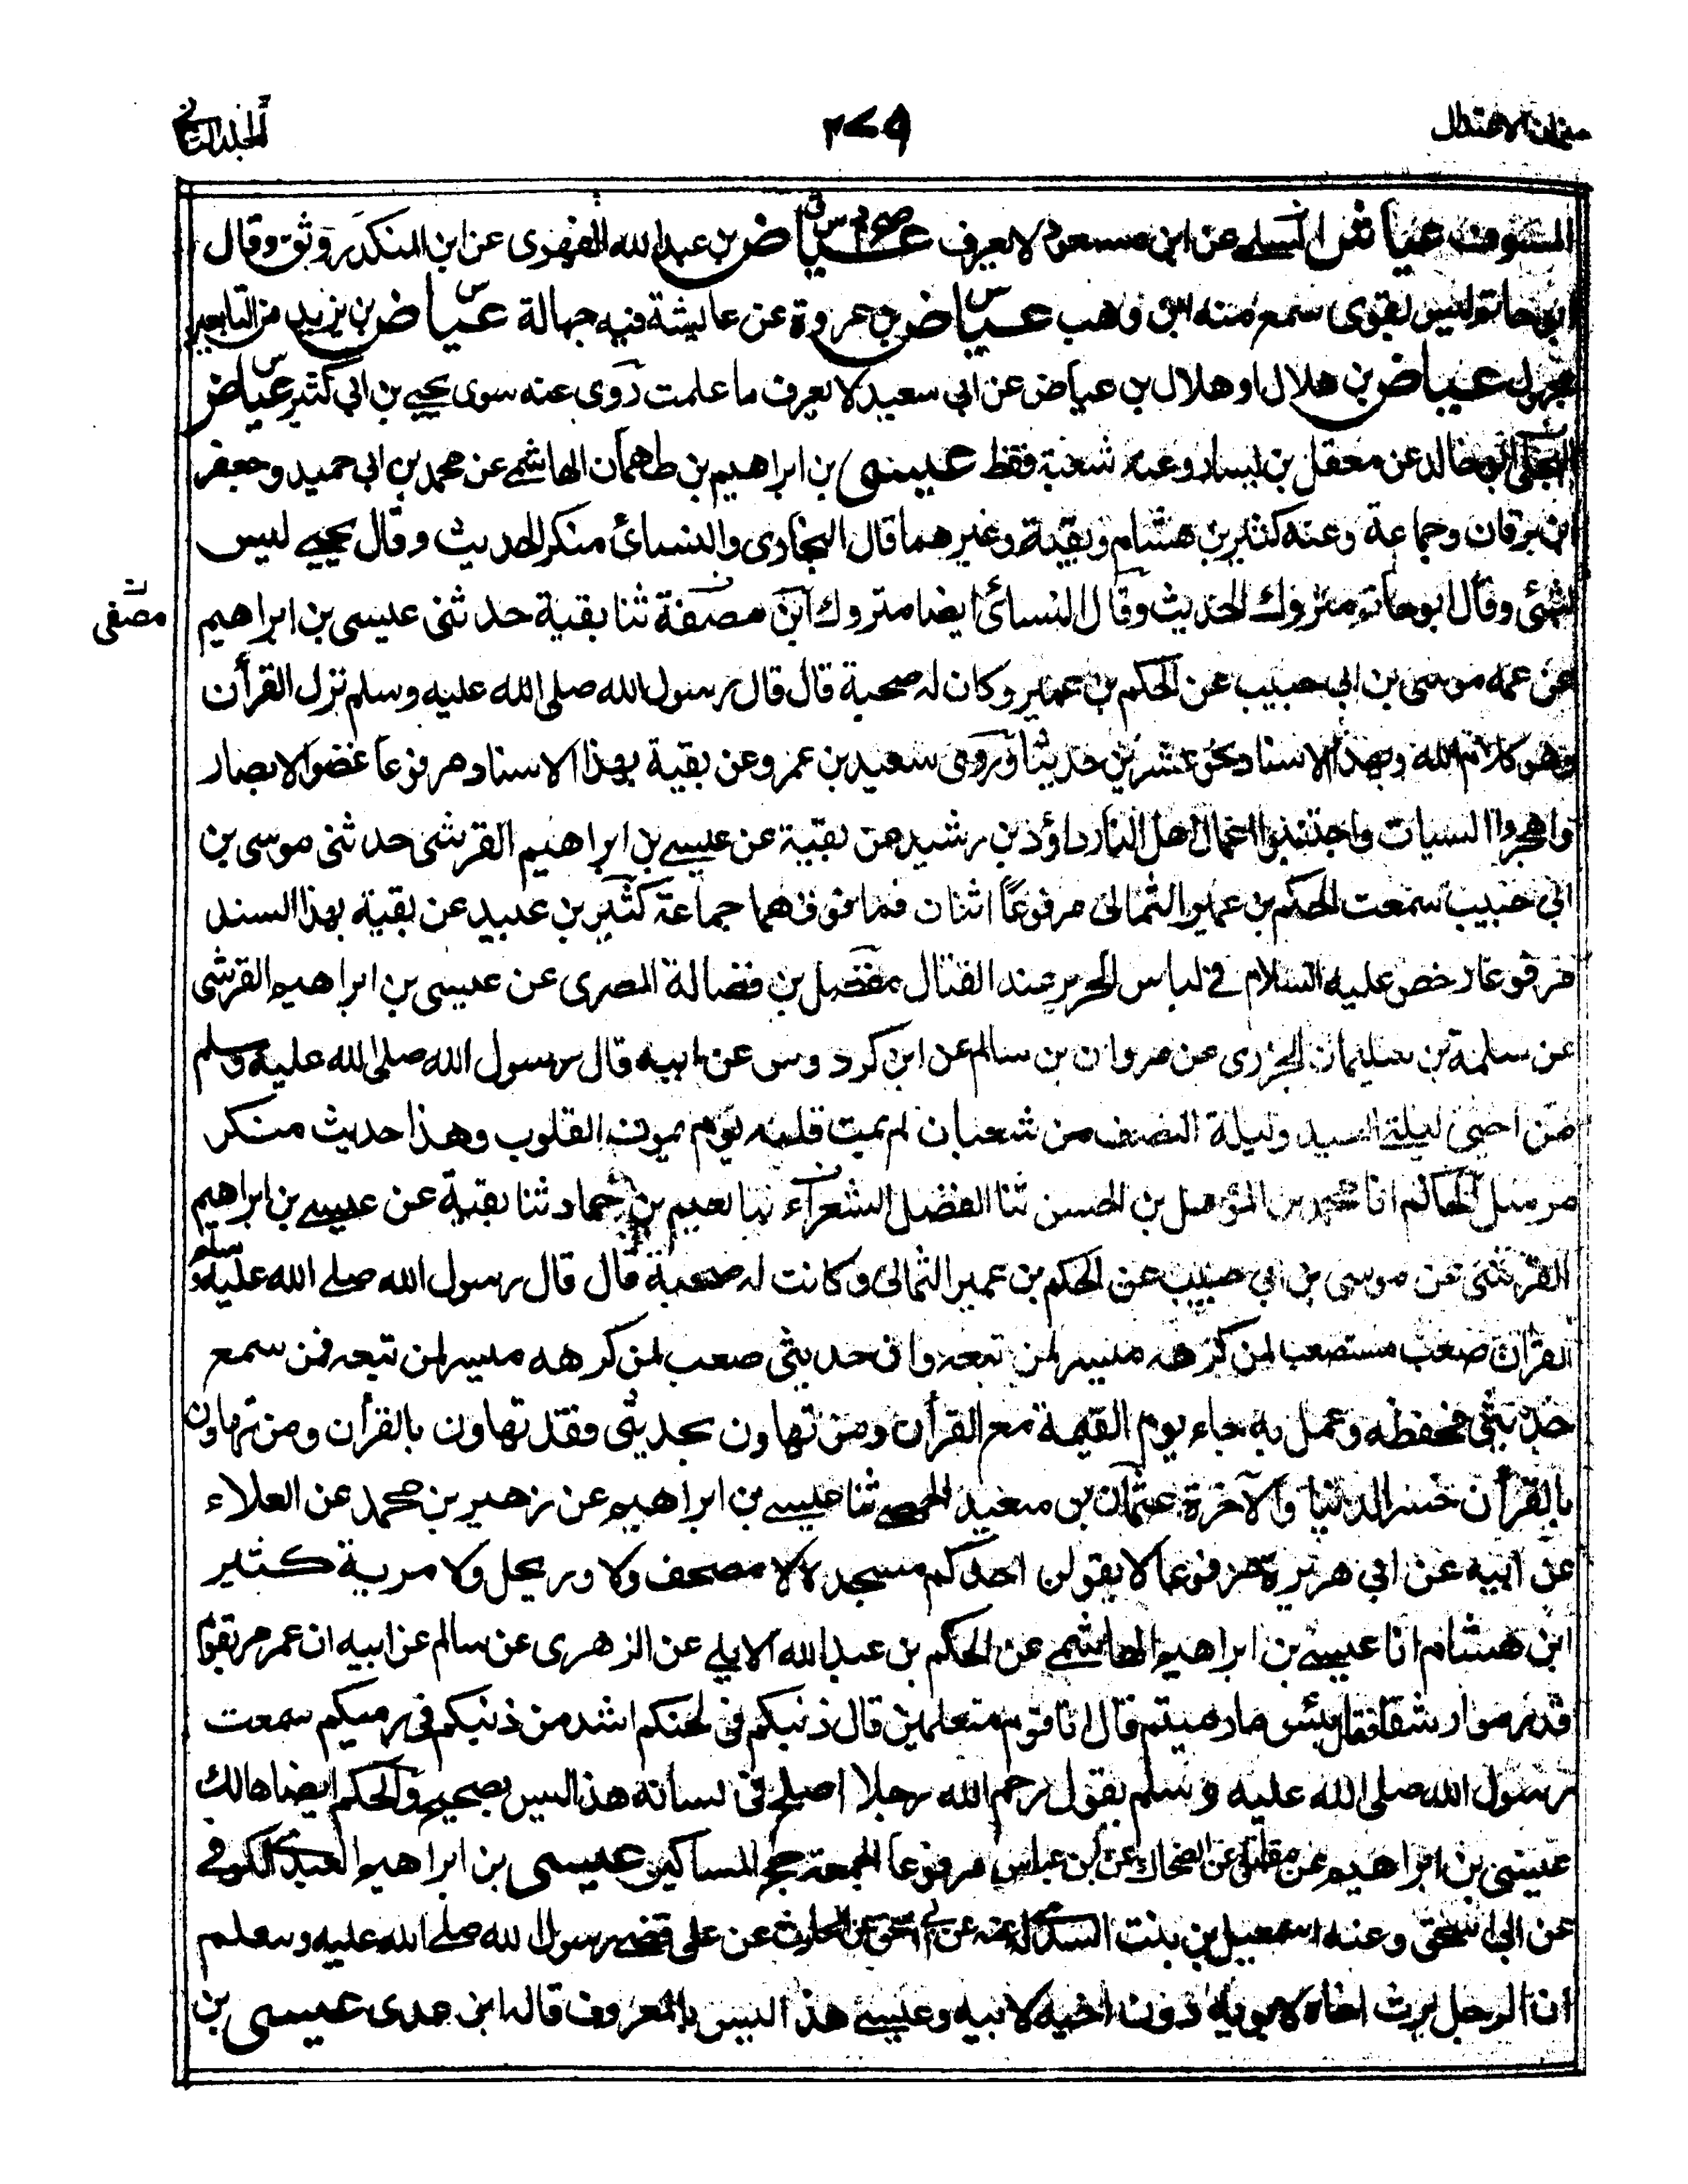 ميزان الاعتدال
٢٧٩
المجلد الثانى
عياش السلمى عن ابن مسعود لا يعرف عياض بن عبد الله الفهرى عن ابن المنكدر وثق وقال
ابو حاتم ليس بقوى سمع منه ابن وهب عياض بن عروة عن عايشة فيه جهالة عياض بن يزيد من التابعين
مجهول عياض بن هلال او هلال بن عياض عن ابى سعيد لا يعرف ما علمت روى عنه سوى يحيى بن ابى كثير عياض
البجلى ابو خالد عن معقل بن يسار وعنه شعبة فقط عيسى بن ابراهيم بن طهمان الهاشمى عن محمد بن ابى حميد وجعفر
ابن برقان وجماعة وعنه كثير بن هشام وبقية وغيرهما قال البخارى والنسائى منكر الحديث وقال يحيى ليس
بشئ وقال ابو حاتم متروك الحديث وقال النسائى ايضا متروك ابن مصفة ثنا بقية حدثنى عيسى بن ابراهيم
مصفى
عن عمه موسى بن ابى حبيب عن الحكم بن عمير وكان له صحبة قال قال رسول الله صلى الله عليه وسلم نزل القرأن
وهو كلام الله وبهذا الاسناد نحو عشرين حديثا وروى سعيد بن عمرو عن بقية بهذا الاسناد مرفوعا غضوا الابصار
واهجروا السيات واجتنبوا اعمال اهل النار داؤد بن رشيد عن بقية عن عيسى بن ابراهيم القرشى حدثنى موسى بن
ابى حبيب سمعت الحكم بن عمير الثمالى مرفوعا اثنان فما فوقهما جماعة كثير بن عبيد عن بقية بهذا السند
مرفوعا رخص عليه السلام فى لباس الحرير عند القتال مفضل بن فضالة المصرى عن عيسى بن ابراهيم القرشى
عن سلمة بن سليمان الجزرى عن مروان بن سالم عن ابن كردوس عن ابيه قال رسول الله صلى الله عليه وسلم
من احيى ليلة العيد وليلة النصف من شعبان لم يمت قلبه يوم يموت القلوب وهذا حديث منكر
مرسل الحاكم انا محمد بن المؤمل بن الحسن ثنا الفضل الشعراء نيا نعيم بن حماد ثنا بقية عن عيسى بن ابراهيم
القرشى عن موسى بن ابى حبيب عن الحكم بن عمير الثمالى وكانت له صحبة قال قال رسول الله صلى الله عليه وسلم
القرأن صعب مستصعب لمن كرهه ميسر لمن تبعه وان حديثى صعب لمن كرهه ميسر لمن تبعه فمن سمع
حديثى فحفظه وعمل به جاء يوم القيمة مع القرأن ومن تهاون بحديثى فقد تهاون بالقرأن ومن تهاون
بالقرأن خسر الدنيا والآخرة عثمان بن سعيد الحمصى ثنا عيسى بن ابراهيم عن زهير بن محمد عن العلاء
عن ابيه عن ابى هريرة مرفوعا لا يقولن احدكم مسجد لا لا مصحف ولا ورجل ولا مرية كثير
ابن هشام انا عيسى بن ابراهيم الهاشمى عن الحكم بن عبد الله الايلى عن الزهرى عن سالم عن ابيه ان عمر مر بقوم
قد رموا رشقا فقال بئس ما رميتم قال انا قوم متعلمين قال ذنبكم فى لحنكم اشد من ذنبكم فى رميكم سمعت
رسول الله صلى الله عليه وسلم يقول رحم الله رجلا اصلح فى لسانه هذا ليس بصحيح والحكم ايضا هالك
عيسى بن ابراهيم عن مقاتل عن الضحاك عن ابن عباس مرفوعا الجمعة حج المساكين عيسى بن ابراهيم العبدى الكوفى
عن ابى اسحق وعنه اسمعيل بن بنت السدى عن ابى اسحق عن الحارث عن على قضى رسول الله صلى الله عليه وسلم
ان الرجل يرث اخاه لابويه دون اخيه لابيه وعيسى هذا ليس بالمعروف قاله ابن عدى عيسى بن